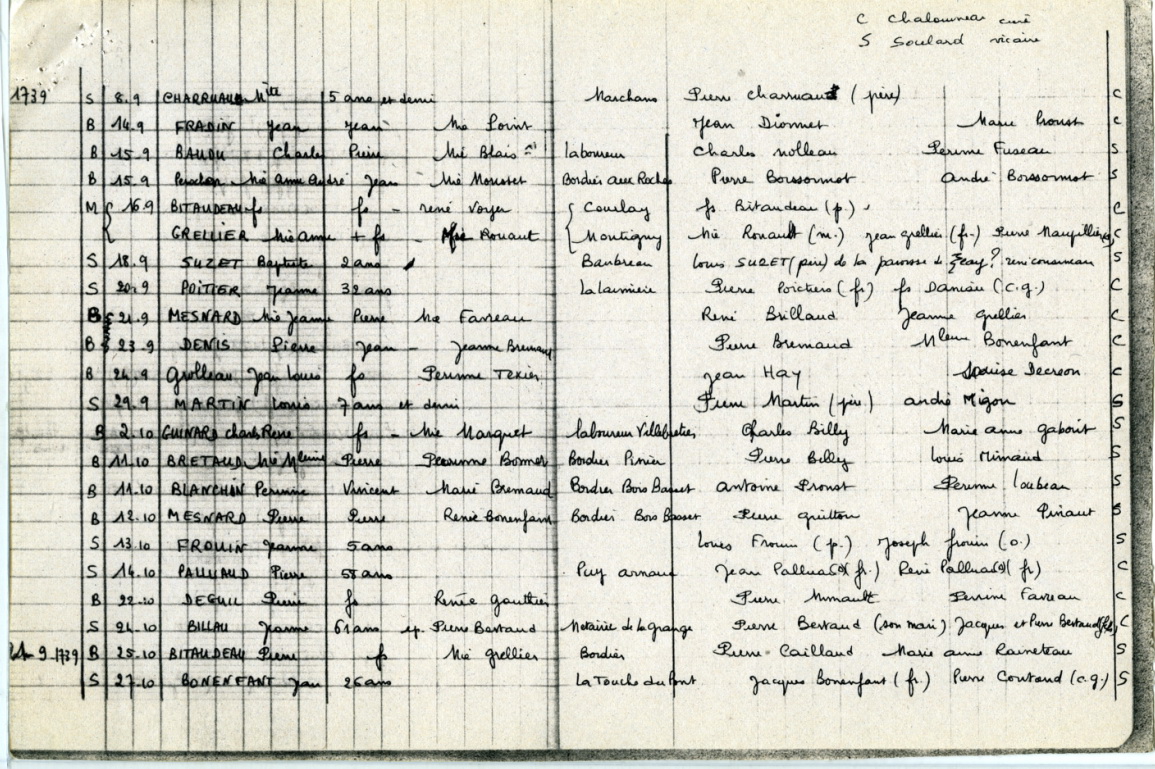 C Chalouneau curé
S Soulard vicaire
1739 S 8.9 CHARRUAUD Mite 5 ans et demi Marchans Pierre Charruaut (père) C
B 14.9 FRADIN Jean Jean Mie Point Jean Dionnet Marie Proust C
B 15.9 BAUDU Charles Pierre Mie Blais laboureur Charles Nolleau Perinne Fuseau S
B 15.9 Mie Anne André Jean Mie Moustet Bordier aux Roches Pierre Boissonnot André Boissonnot S
M 16.9 BITAUDEAU fs fs - rené Voyer Courlay fs Bitaudeau (p.) C
GRELLIER Mie anne + fs - Mie Rouaut Montigny Mie Rouault (m.) Jean grellier (fr.) Pierre C
S 18.9 SUZET Baptiste 2 ans Baubreau Louis SUZET (père) de la paroisse de ? S
S 20.9 POITIER Jeanne 32 ans Pierre Poictiers (fr) fs Daniau (c.g.) C
B 21.9 MESNARD Mie Jeanne Pierre Mie Favreau René Brillaud Jeanne grellier C
B 23.9 DENIS Pierre Jean - Jeanne Bremaud Pierre Bremaud Mleine Bonenfant C
B 24.9 Grolleau Jean Louis fs Perinne Texier Jean HAY Louise Decreon C
S 29.9 MARTIN Louis 7 ans et demi Pierre Martin (père) andré Migon S
B 2.10 GUINARD Charles René fs - Mie Marquet laboureur Charles Billy Marie anne gaborit S
B 11.10 BRETAUD Mie Mleine Pierre Bonnet Bordier Pinier Pierre Billy Louis Minaud S
B 11.10 BLANCHIN Perinne Vincent Marie Bremaud Bordier Bois Basset antoine Proust Perinne Loubeau S
B 12.10 MESNARD Pierre Pierre Renée Bonenfant Bordier Bois Basset Pierre guitton Jeanne Pinaut S
S 13.10 FROUIN Jeanne 5 ans Louis Frouin (p.) Joseph frouin (o.) S
S 14.10 PALLUAUD Pierre 55 ans Puy arnaud Jean (fr.) René (fr) C
B 22.10 DEGUIL Pierre fs Renée gauthier Pierre Mimault Perrine Favreau C
S 24.10 BILLAU Jeanne 61 ans ep. Pierre Bertaud Métairie de la grange Pierre Bertaud (son mari) Jacques et Pierre Bertaud (fils) C
9 1739 B 25.10 BITAUDEAU Pierre f Mie grellier Bordier Pierre Caillaud Marie anne Raineteau S
S 27.10 BONENFANT Jean 26 ans La Touche du Pont Jacques Bonenfant (fr.) Pierre Coutand (c.g.) S